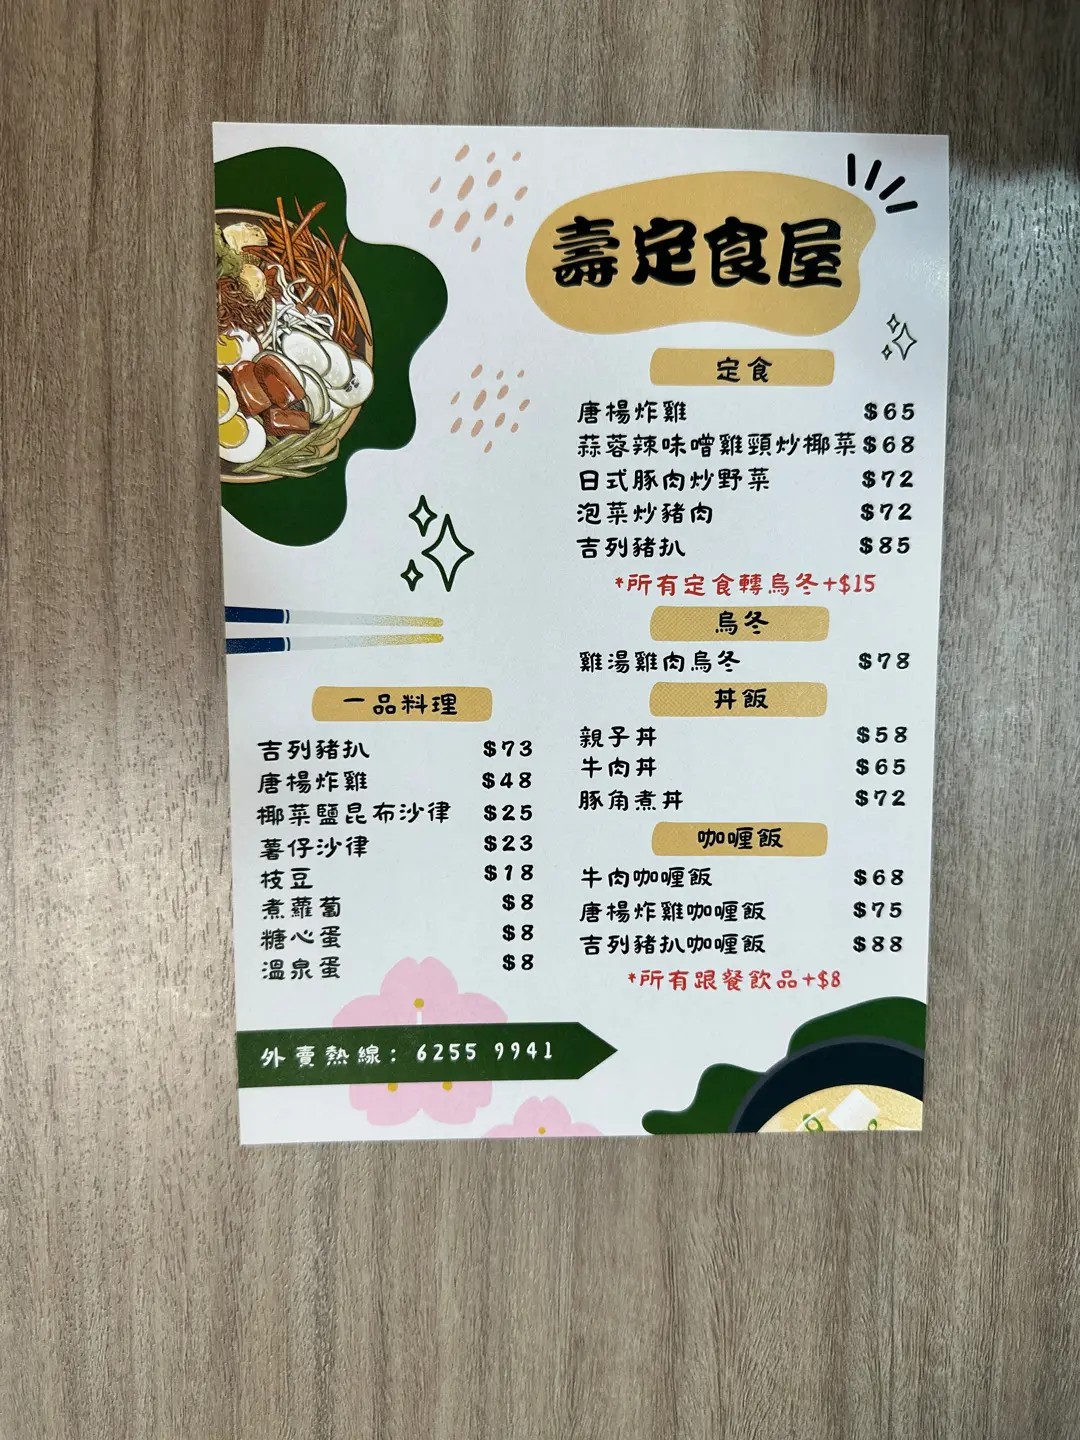 壽定食屋
定食
唐楊炸雞 $65
蒜蓉辣味噌雞頸炒椰菜 $68
日式豚肉炒野菜 $72
泡菜炒豬肉 $72
吉列豬扒 $85
*所有定食轉烏冬+$15
烏冬
雞湯雞肉烏冬 $78
丼飯
親子丼 $58
牛肉丼 $65
豚角煮丼 $72
咖喱飯
牛肉咖喱飯 $68
唐楊炸雞咖喱飯 $75
吉列豬扒咖喱飯 $88
*所有跟餐飲品+$8
一品料理
吉列豬扒 $73
唐楊炸雞 $48
椰菜鹽昆布沙律 $25
薯仔沙律 $23
枝豆 $18
煮蘿蔔 $8
糖心蛋 $8
溫泉蛋 $8
外賣熱線: 6255 9941